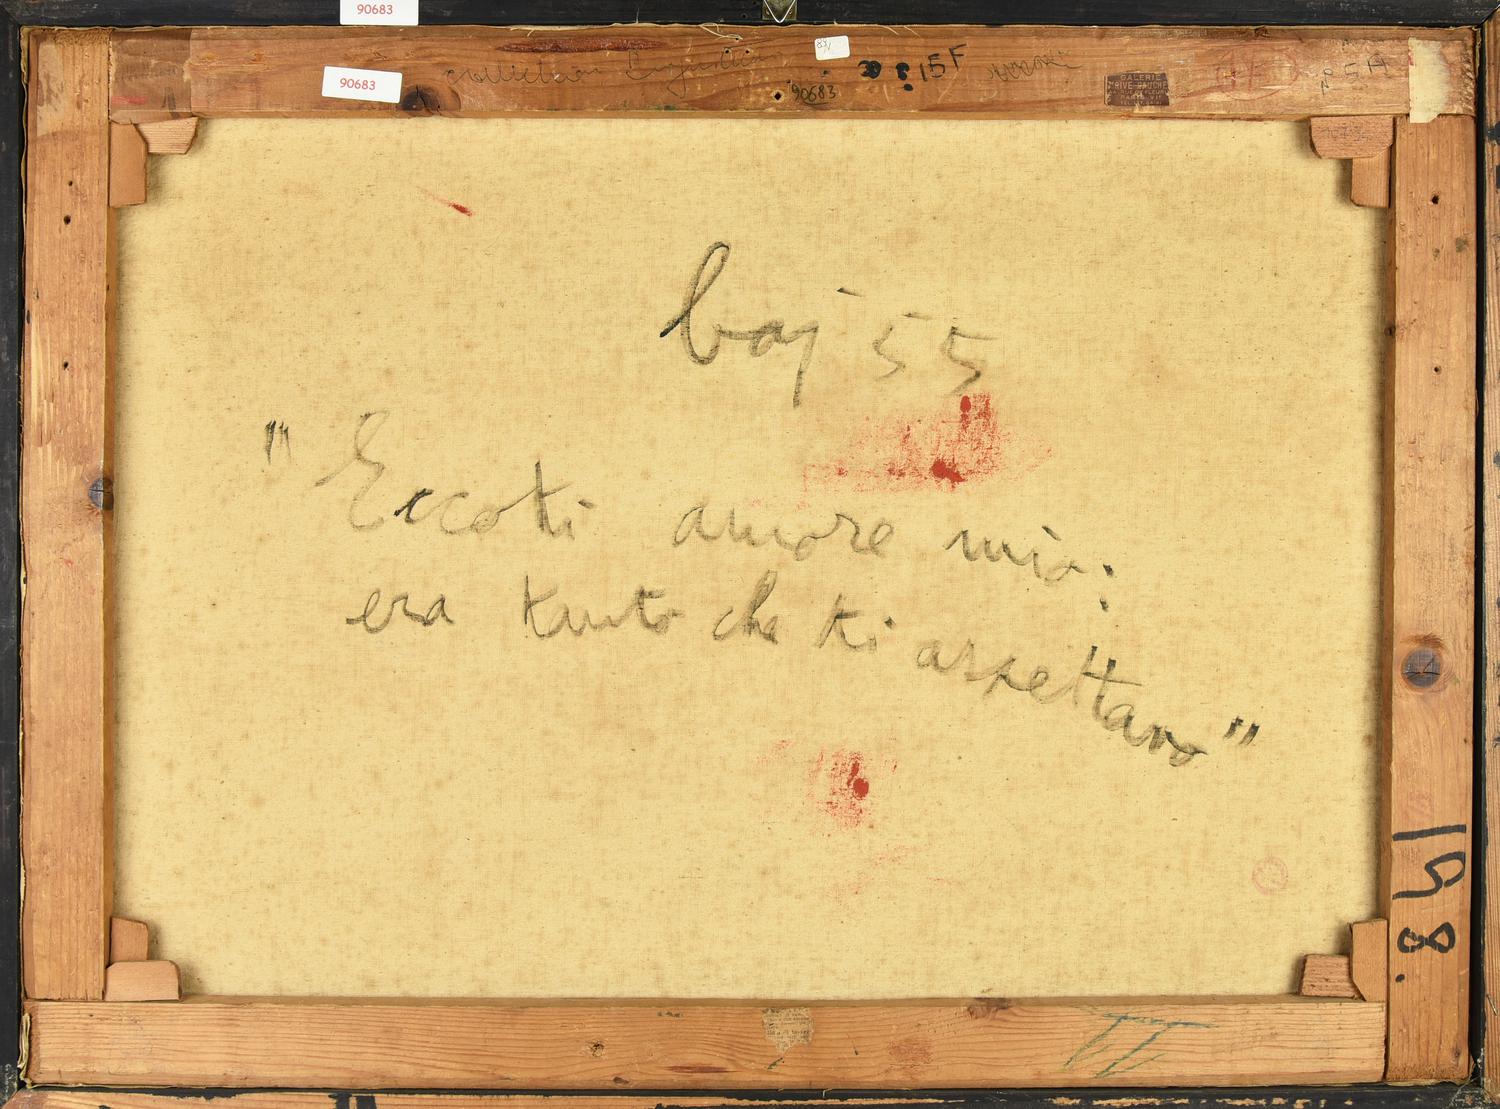 90683
90683
collection
90683
15F
GALERIE
RIVE GAUCHE
baj 55
" Eccoti amore mio:
era tanto che ti aspettavo "